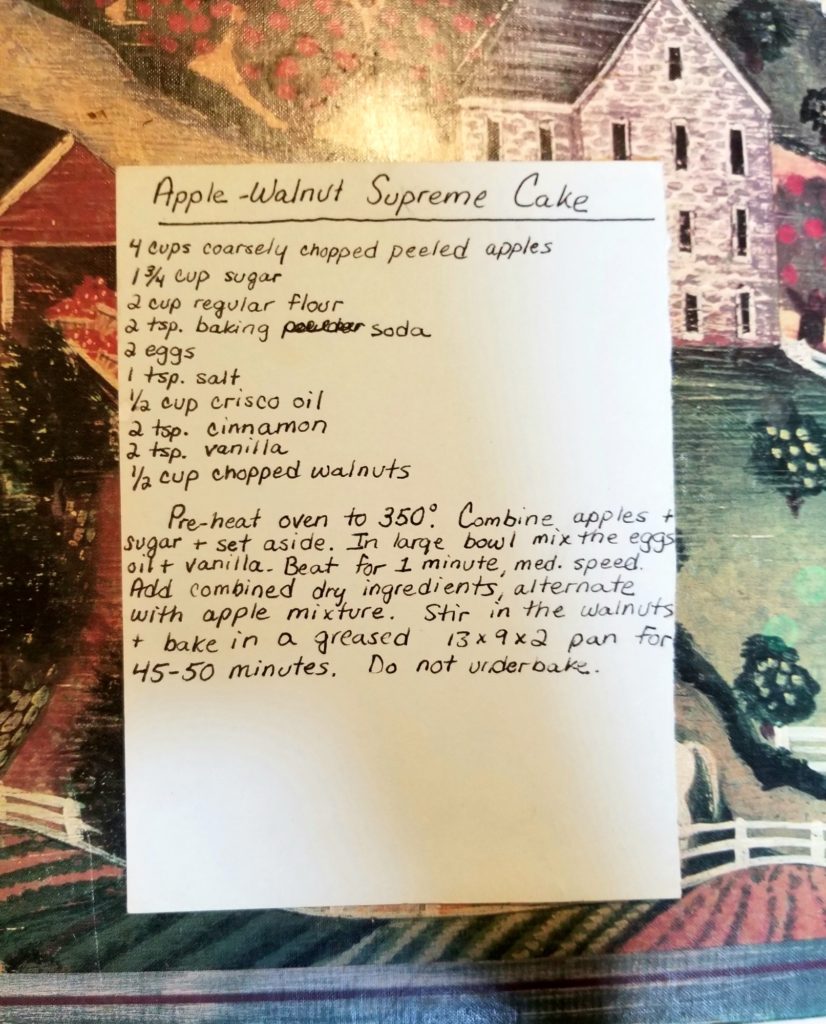 Apple-Walnut Supreme Cake
4 cups coarsely chopped peeled apples
1 3/4 cup sugar
2 cup regular flour
2 tsp. baking powder soda
2 eggs
1 tsp. salt
1/2 cup crisco oil
2 tsp. cinnamon
2 tsp. vanilla
1/2 cup chopped walnuts
Pre-heat oven to 350°. Combine apples +
sugar + set aside. In large bowl mix the eggs
oil + vanilla. Beat for 1 minute, med. speed.
Add combined dry ingredients, alternate
with apple mixture. Stir in the walnuts
+ bake in a greased 13x9x2 pan for
45-50 minutes. Do not underbake.